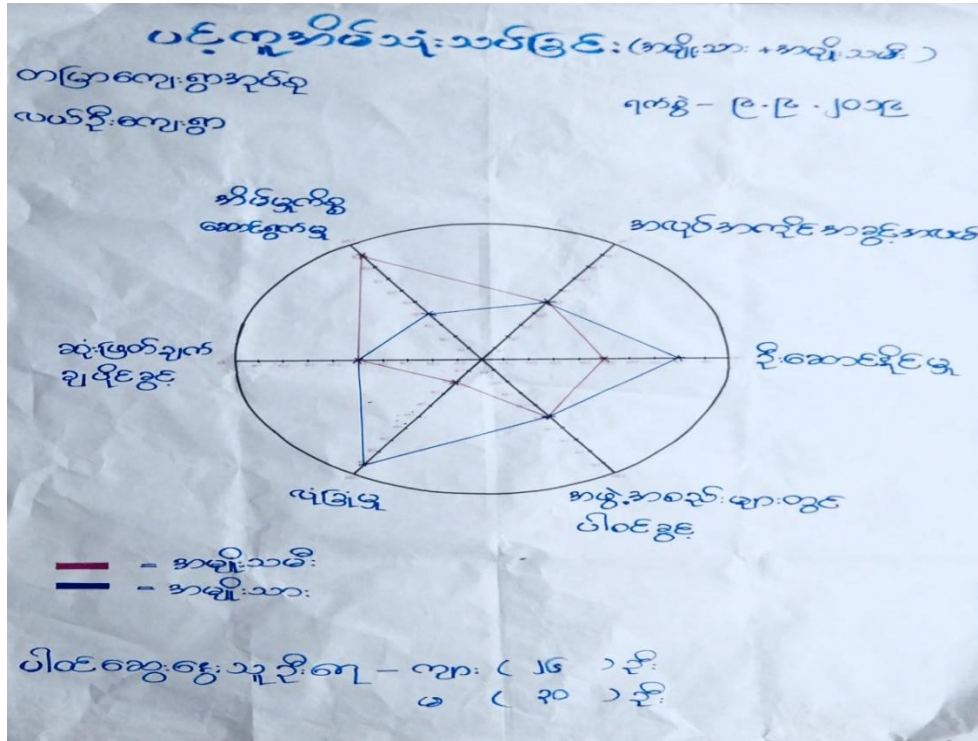 ပင့်ကူအိမ်သုံးသပ်ခြင်း (အမျိုးသား + အမျိုးသမီး)
တမြာကျေးရွာအုပ်စု
လယ်ဦးကျေးရွာ
ရက်စွဲ – ၉.၉.၂၀၁၉
အိမ်မှုကိစ္စ
ဆောင်ရွက်မှု
အလုပ်အကိုင်အခွင့်အလမ်း
ဆုံးဖြတ်ချက်
ချပိုင်ခွင့်
ဦးဆောင်နိုင်မှု
လုံခြုံမှု
အဖွဲ့အစည်းများတွင်
ပါဝင်ခွင့်
– အမျိုးသမီး
– အမျိုးသား
ပါဝင်ဆွေးနွေးသူဦးရေ – ကျား ( ၂၆ ) ဦး
မ ( ၃၀ ) ဦး